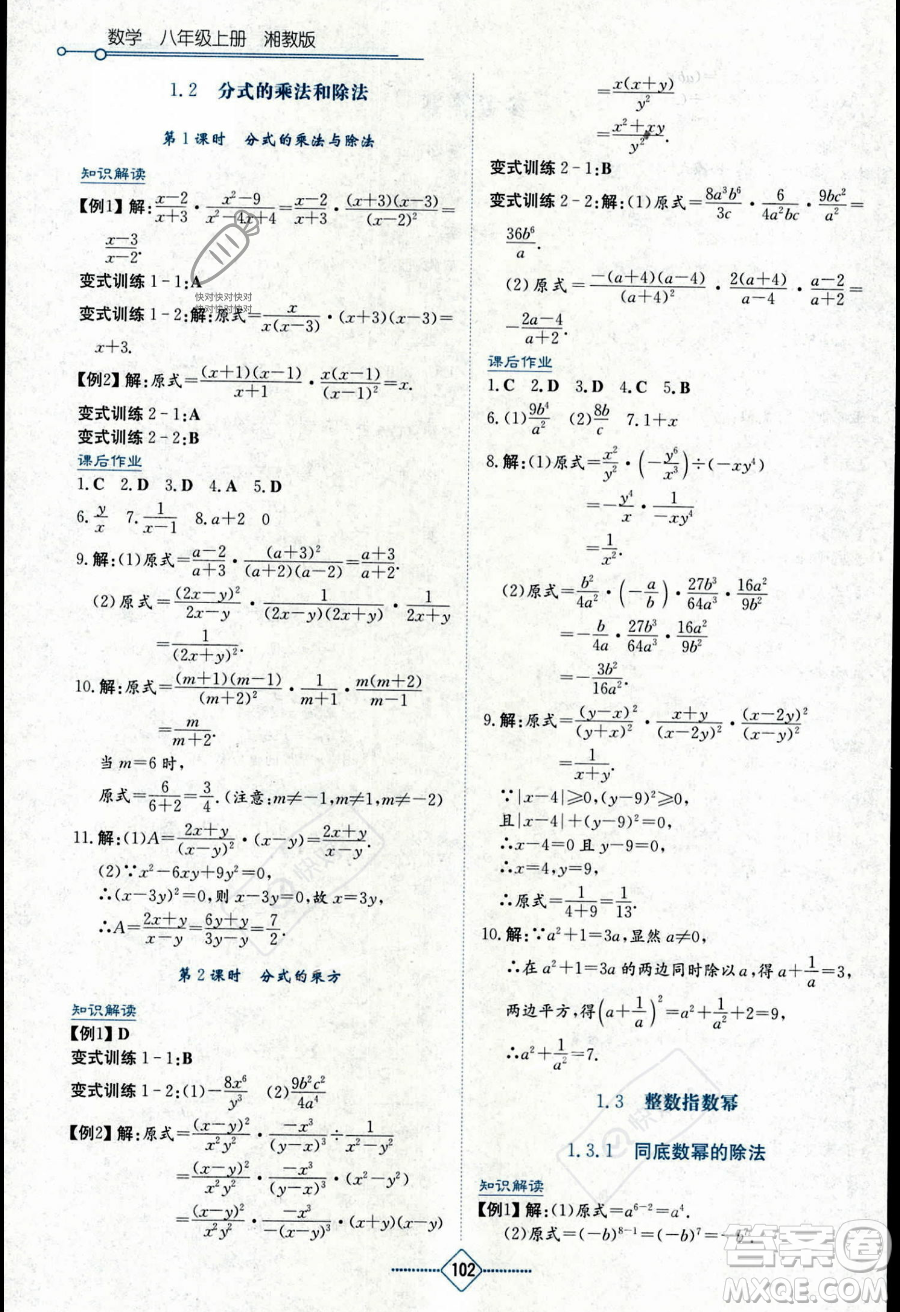 数学 八年级上册 湘教版
1.2 分式的乘法和除法
第1课时 分式的乘法与除法
知识解读
【例1】解:\frac{x-2}{x+3}·\frac{x²-9}{x²-4x+4}=\frac{x-2}{x+3}·\frac{(x+3)(x-3)}{(x-2)²}=
\frac{x-3}{x-2}.
变式训练1-1:A
快对快对快对
快对快对快对
变式训练1-2:解:原式=\frac{x}{x(x-3)}·(x+3)(x-3)=
x+3.
【例2】解:原式=\frac{(x+1)(x-1)}{x+1}·\frac{x(x-1)}{(x-1)²}=x.
变式训练2-1:A
变式训练2-2:B
课后作业
1.C 2.D 3.D 4.A 5.D
6.\frac{y}{x} 7.\frac{1}{x-1} 8.a+2 0
9.解:(1)原式=\frac{a-2}{a+3}·\frac{(a+3)²}{(a+3)(a-3)}=\frac{a-2}{a-3}.
(2)原式=\frac{(2x-y)²}{2x-y}·\frac{1}{(2x-y)(2x+y)}·\frac{1}{2x+y}
=\frac{1}{(2x+y)²}.
10.解:原式=\frac{(m+1)(m-1)}{(m+2)²}·\frac{1}{m+1}·\frac{m(m+2)}{m-1}
=\frac{m}{m+2}.
当m=6时,
原式=\frac{6}{6+2}=\frac{3}{4}.(注意:m≠-1,m≠1,m≠-2)
11.解:(1)A=\frac{2x+y}{(x-y)²}·(x-y)=\frac{2x+y}{x-y}.
(2)∵x²-6xy+9y²=0,
∴(x-3y)²=0,则x-3y=0,故x=3y,
∴A=\frac{2x+y}{x-y}=\frac{6y+y}{3y-y}=\frac{7}{2}.
第2课时 分式的乘方
知识解读
【例1】D
变式训练1-1:B
变式训练1-2:(1)-\frac{8x⁶}{y³} (2)\frac{9b²c²}{4a⁴}
【例2】解:原式=\frac{(x²-y²)²}{x²y²}·\frac{-x³}{(x-y)³}÷\frac{1}{x+y}
=\frac{(x²-y²)²}{x²y²}·\frac{-x³}{(x-y)³}·(x+y)
=\frac{x(x+y)}{y²}
=\frac{x²+xy}{y²}.
变式训练2-1:B
变式训练2-2:解:(1)原式=\frac{8a³b⁶}{3c}·\frac{6}{4a²bc}·\frac{9bc²}{a²}=
\frac{36b⁶}{a}.
(2)原式=\frac{-(a+4)(a-4)}{(a+4)²}·\frac{2(a+4)}{a-4}·\frac{a-2}{a+2}=
-\frac{2a-4}{a+2}.
课后作业
1.C 2.D 3.D 4.C 5.B
6.(1)\frac{9b⁴}{a²} (2)\frac{8b}{c} 7.1+x
8.解:(1)原式=\frac{x²}{y}·(-\frac{y⁶}{x³})÷(-xy⁴)
=-\frac{y⁴}{x}·\frac{1}{-xy⁴}
=\frac{1}{x²}.
(2)原式=\frac{b²}{4a²}·(-\frac{a}{b})·\frac{27b³}{64a³}·\frac{16a²}{9b²}
=-\frac{b}{4a}·\frac{27b³}{64a³}·\frac{16a²}{9b²}
=-\frac{3b²}{16a²}.
9.解:原式=\frac{(y-x)²}{(y+x)²}·\frac{x+y}{(x-2y)²}·\frac{(x-2y)²}{(x-y)²}
=\frac{1}{x+y}.
∵|x-4|≥0,(y-9)²≥0,
且|x-4|+(y-9)²=0,
∴x-4=0且y-9=0,
∴x=4,y=9,
∴原式=\frac{1}{4+9}=\frac{1}{13}.
10.解:∵a²+1=3a,显然a≠0,
∴在a²+1=3a的两边同时除以a,得a+\frac{1}{a}=3,
两边平方,得(a+\frac{1}{a})²=a²+\frac{1}{a²}+2=9,
∴a²+\frac{1}{a²}=7.
1.3 整数指数幂
1.3.1 同底数幂的除法
知识解读
【例1】解:(1)原式=a⁶⁻²=a⁴.
(2)原式=(-b)⁸⁻¹=(-b)⁷=-b⁷.
102
答案圈
MXQE.COM